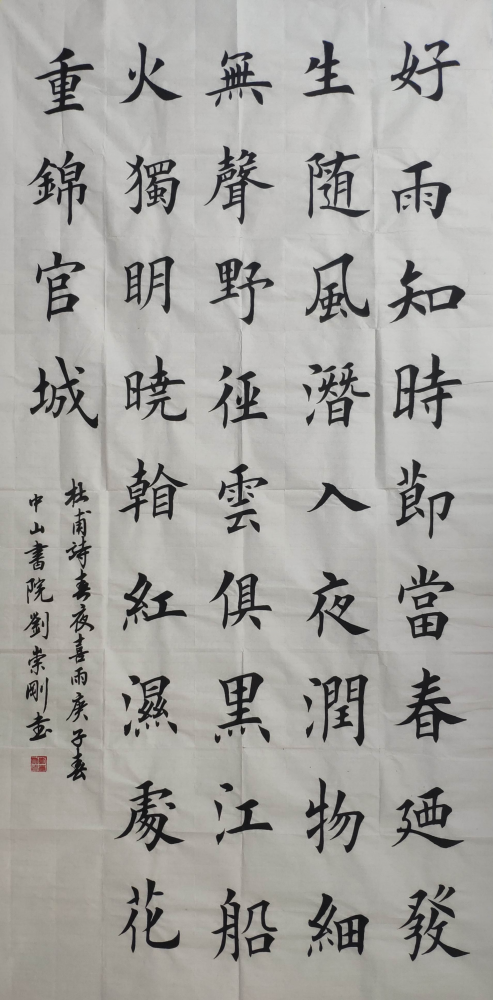 好雨知時節當春廼發
生随風潛入夜潤物細
無聲野徑雲俱黑江船
火獨明暁看紅濕處花
重錦官城
杜甫詩春夜喜雨庚子春
中山書院劉崇剛書